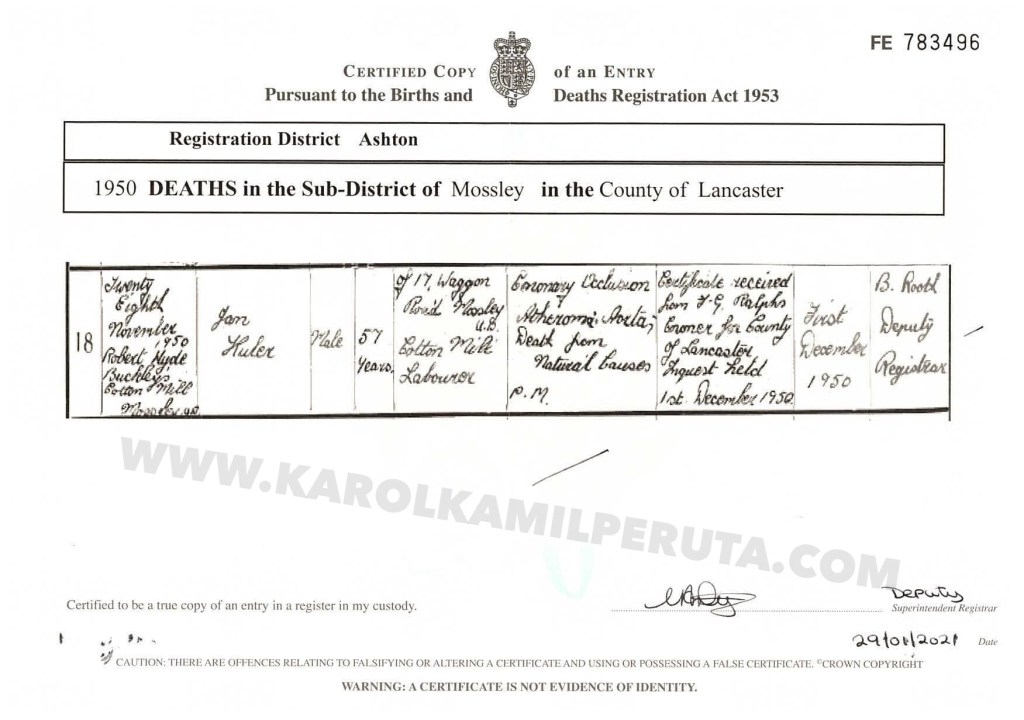 FE 783496
CERTIFIED COPY of an ENTRY
Pursuant to the Births and Deaths Registration Act 1953
Registration District Ashton
1950 DEATHS in the Sub-District of Mossley in the County of Lancaster
18
Twenty
Eighth
November
1950
Robert Hyde
Buckley's
Cotton Mill
Mossley U.D.
Jan
Huler
Male
57
Years
of 17, Waggon
Road Mossley
U.D.
Cotton Mill
Labourer
Coronary Occlusion
Atheroma; Aorta;
Death from
Natural Causes
P.M.
Certificate received
from F.G. Ralphs
Coroner for County
of Lancaster
Inquest held
1st December 1950.
First
December
1950
B. Rooth
Deputy
Registrar
WWW.KAROLKAMILPERUTA.COM
Certified to be a true copy of an entry in a register in my custody.
Deputy
Superintendent Registrar
29/01/2021 Date
CAUTION: THERE ARE OFFENCES RELATING TO FALSIFYING OR ALTERING A CERTIFICATE AND USING OR POSSESSING A FALSE CERTIFICATE. ©CROWN COPYRIGHT
WARNING: A CERTIFICATE IS NOT EVIDENCE OF IDENTITY.